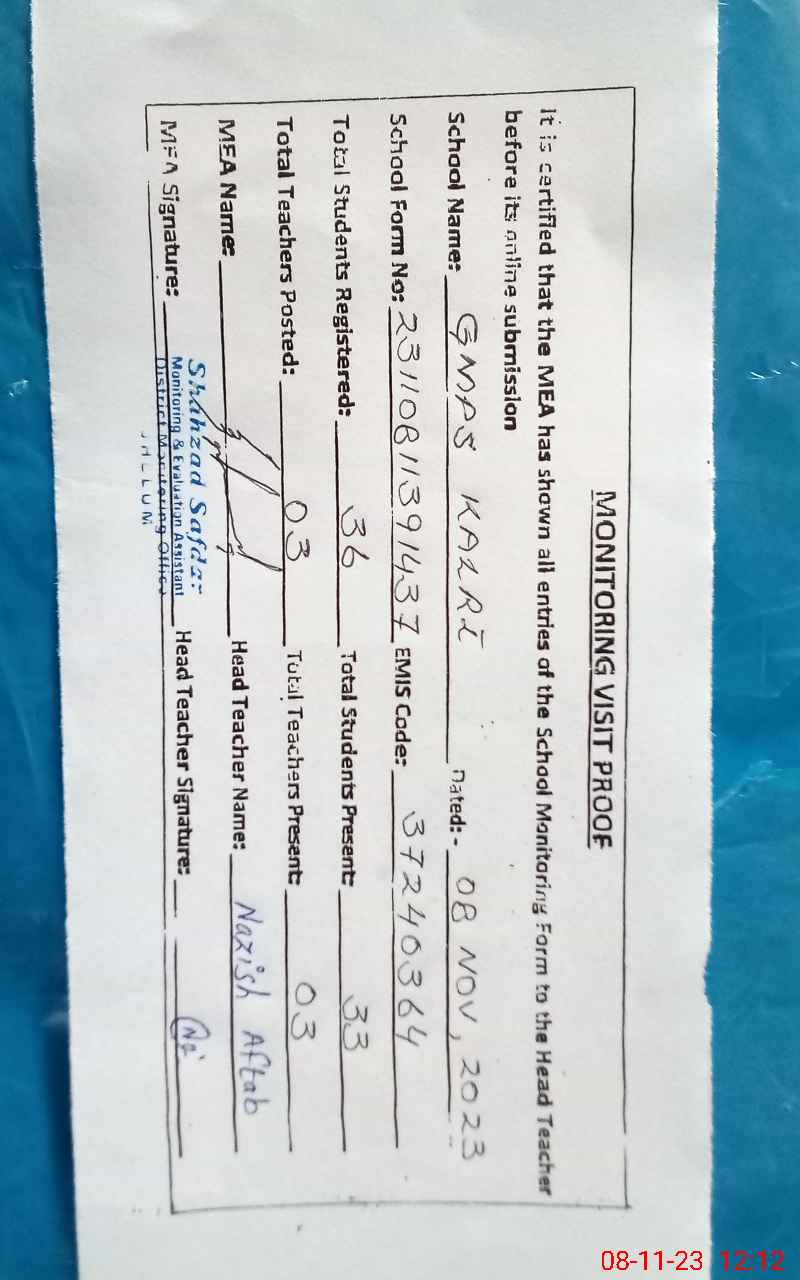 MONITORING VISIT PROOF
It is certified that the MEA has shown all entries of the School Monitoring Form to the Head Teacher
before its online submission
School Name: GMPS KALRI Dated:- 08 NOV, 2023
School Form No: 23110811391437 EMIS Code: 37240364
Total Students Registered: 36 Total Students Present: 33
Total Teachers Posted: 03 Total Teachers Present: 03
MEA Name: Head Teacher Name: Nazish Aftab
MEA Signature: Head Teacher Signature:
Shahzad Safdar
Monitoring & Evaluation Assistant
District Monitoring Office
JHELUM
08-11-23 12:12